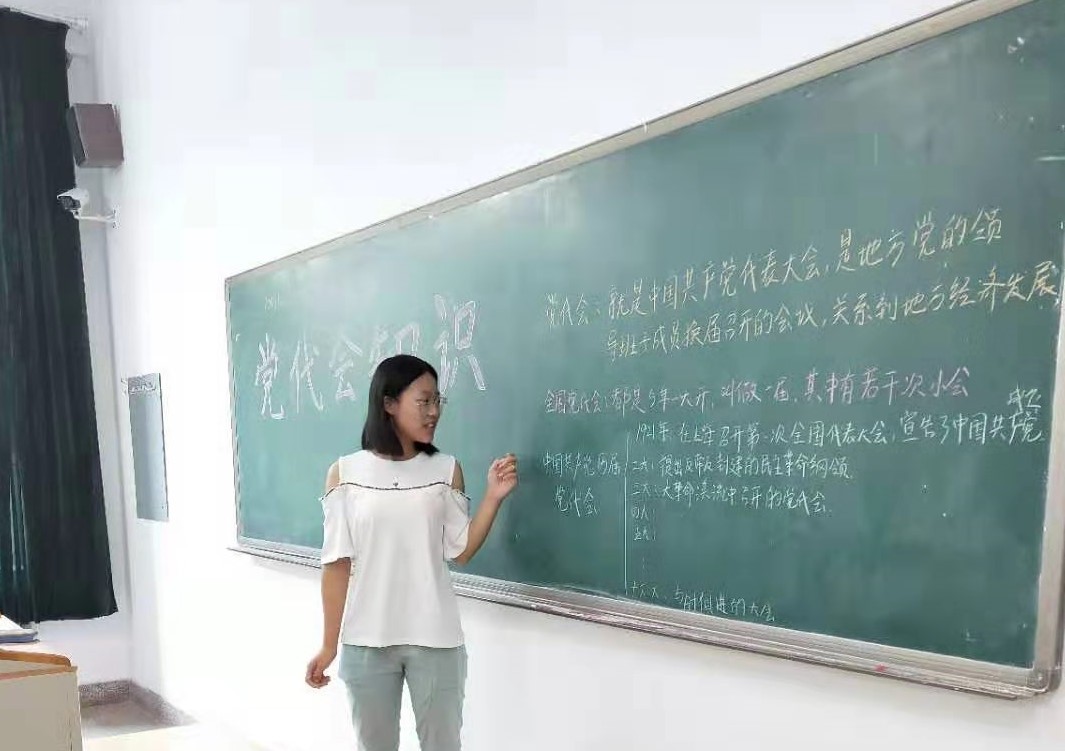 党代会知识
党代会：就是中国共产党代表大会，是地方党的领
导班子成员换届召开的会议，关系到地方经济发展
全国党代会：都是5年一大开，叫做一届，其中有若干次小会
成立
1921年 在上海召开第一次全国代表大会，宣告了中国共产党
中国共产党历届
党代会
二大：提出反帝反封建的民主革命纲领
三大：大革命洪流中召开的党代会
四大：
五大：
十八大：与时俱进的大会